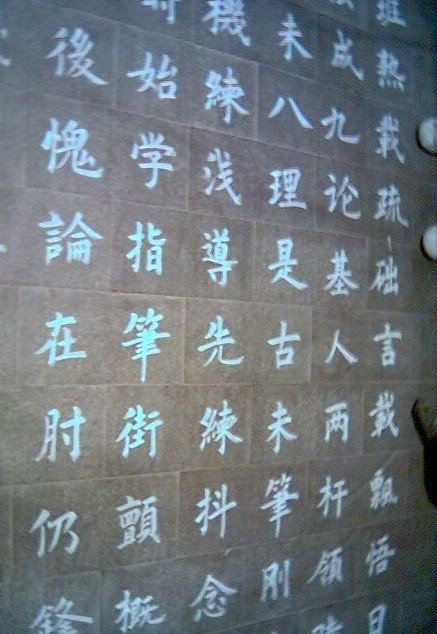 班熟載疏础言載飄悟日
成九论基人两杆领
未八理是古未筆刚
機練浅導先練抖念
始学指筆街顫概
後愧論在肘仍鋒